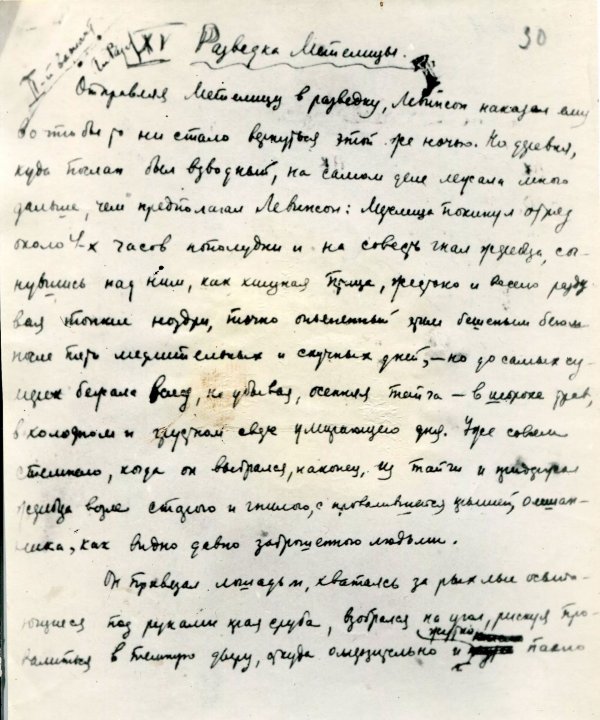 30
XV Разведка Метелицы.
Отправляя Метелицу в разведку, Левинсон наказал ему
во что бы то ни стало вернуться этой же ночью. Но деревня,
куда послан был взводный, на самом деле лежала много
дальше, чем предполагал Левинсон: Метелица покинул отряд
около 4-х часов пополудни и на совесть гнал жеребца, со-
гнувшись над ним, как хищная птица, жестоко и весело разду-
вая тонкие ноздри, точно опьяненный этим бешеным бегом
после пяти медлительных и скучных дней, – но до самых су-
мерек бежала вслед, не убывая, осенняя тайга – в шорохе трав,
в холодном и грустном свете умирающего дня. Уже совсем
стемнело, когда он выбрался, наконец, из тайги и придержал
жеребца возле старого и гнилого, с провалившейся крышей, омшан-
ника, как видно давно заброшенного людьми.
Он привязал лошадь и, хватаясь за рыхлые осыпа-
ющиеся под руками края сруба, взобрался на угол, рискуя про-
валиться в темную дыру, откуда омерзительно и жутко пахло